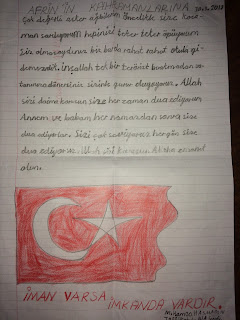 AFRİN'İN KAHRAMANLARINA
Çok değerli asker ağabeylerim Öncelikle size kocaman
sarılıyorum hepinizi teker teker öpüyorum
siz olmasaydınız biz bu rahat rahat okula gi
demezdik. İnşallah tek bir terörist
sizinle gurur duyuyorum. Allah
sizi daima korusun size her zaman dua ediyorum
Annem ve babam her namazdan sonra size
dua ediyorlar. Sizi çok seviyoruz hergün size
dua ediyoruz. Allah sizi korusun Allaha emanet
olun.
İMAN VARSA
İMKANDA VARDIR.